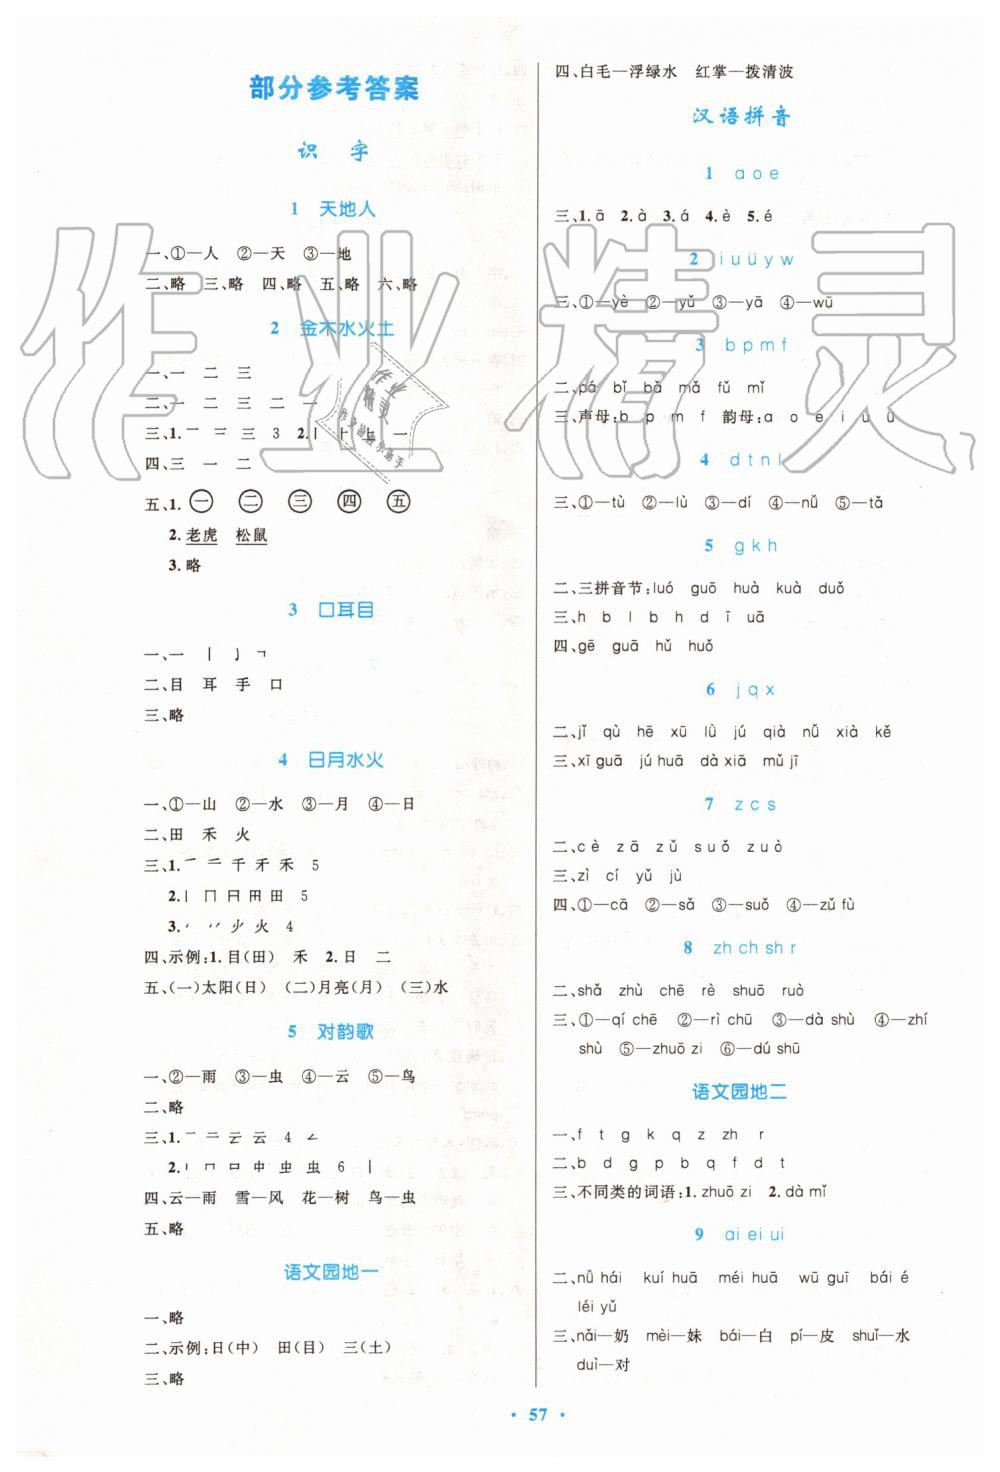 部分参考答案
识 字
1 天地人
一、①—人 ②—天 ③—地
二、略 三、略 四、略 五、略 六、略
2 金木水火土
一、一 二 三
二、一 二 三 二 一
三、1.一 二 三 3 2.丨 ⺊ 上 一
四、三 一 二
五、1. 一 二 三 四 五
2.老虎 松鼠
3.略
3 口耳目
一、一 丨 亅 ㄱ
二、目 耳 手 口
三、略
4 日月水火
一、①—山 ②—水 ③—月 ④—日
二、田 禾 火
三、1. 千 禾 5
2.丨 冂 田 5
3. 火 4
四、示例:1.目(田) 禾 2.日 二
五、(一)太阳(日) (二)月亮(月) (三)水
5 对韵歌
一、②—雨 ③—虫 ④—云 ⑤—鸟
二、略
三、1.一 二 云 云 4
2.丨 口 中 虫 虫 6 丨
四、云—雨 雪—风 花—树 鸟—虫
五、略
语文园地一
一、略
二、示例:日(中) 田(目) 三(土)
三、略
四、白毛—浮绿水 红掌—拨清波
汉语拼音
1 a o e
三、1.ā 2.à 3.á 4.è 5.é
2 i u ü y w
三、①—yè ②—yǔ ③—yā ④—wū
3 b p m f
二、pá bǐ bǎ mǎ fǔ mǐ
三、声母:b p m f 韵母:a o e i u ü
4 d t n l
三、①—tù ②—lù ③—dí ④—nǚ ⑤—tǎ
5 g k h
二、三拼音节:luó guō huà kuà duǒ
三、h b l b h d ī uā
四、gē guā hǔ huǒ
6 j q x
二、jǐ qù hē xū lǜ jú qià nǚ xià kě
三、xī guā jú huā dà xiā mǔ jī
7 z c s
二、cè zā zǔ suǒ zuò
三、zì cí yǔ jù
四、①—cā ②—sǎ ③—suǒ ④—zǔ fù
8 zh ch sh r
二、shǎ zhù chē rè shuō ruò
三、①—qí chē ②—rì chū ③—dà shù ④—zhí
shù ⑤—zhuō zi ⑥—dú shū
语文园地二
一、f t g k q z zh r
二、b d g b q f d b
三、不同类的词语:1.zhuō zi 2.dà mǐ
9 ai ei ui
二、nǚ hái kuí huā méi huā wū guī bái é
léi yǔ
三、nǎi—奶 mèi—妹 bái—白 pí—皮 shuǐ—水
duì—对
· 57 ·
作业精灵
作业精灵